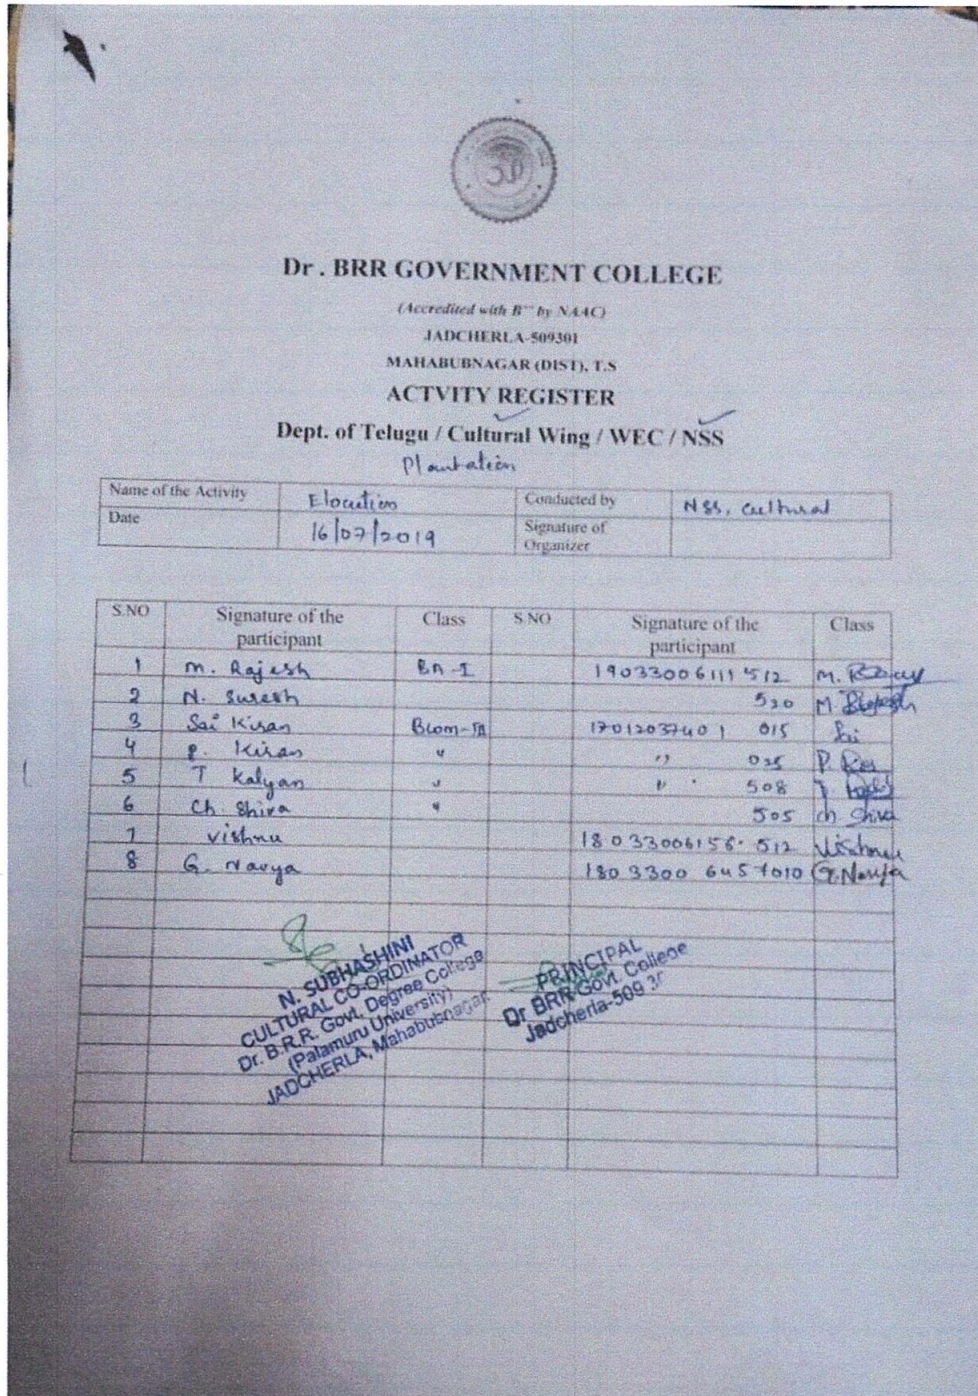 Dr . BRR GOVERNMENT COLLEGE
(Accredited with B++ by NAAC)
JADCHERLA-509301
MAHABUBNAGAR (DIST), T.S
ACTVITY REGISTER
Dept. of Telugu / Cultural Wing / WEC / NSS
Plantation
Name of the Activity Elocution Conducted by NSS, cultural
Date 16/07/2019 Signature of Organizer
S.NO Signature of the participant Class S.NO Signature of the participant Class
1 M. Rajesh BA-I 19033006111 512 M.
2 N. Suresh 520 M
3 Sai Kiran 17012037401 015 Sai
4 P. Kiran " " 025 P.
5 T Kalyan " " 508 T
6 Ch. Shiva " 505 Ch Shiva
7 Vishnu 18033006156 512 Vishnu
8 G. Navya 1803300 6457010 G. Navya
N. SUBHASHINI
CULTURAL CO-ORDINATOR
Dr. B.R.R. Govt. Degree College
(Palamuru University)
JADCHERLA, Mahabubnagar
PRINCIPAL
Dr BRR Govt. College
Jadcherla-509 3